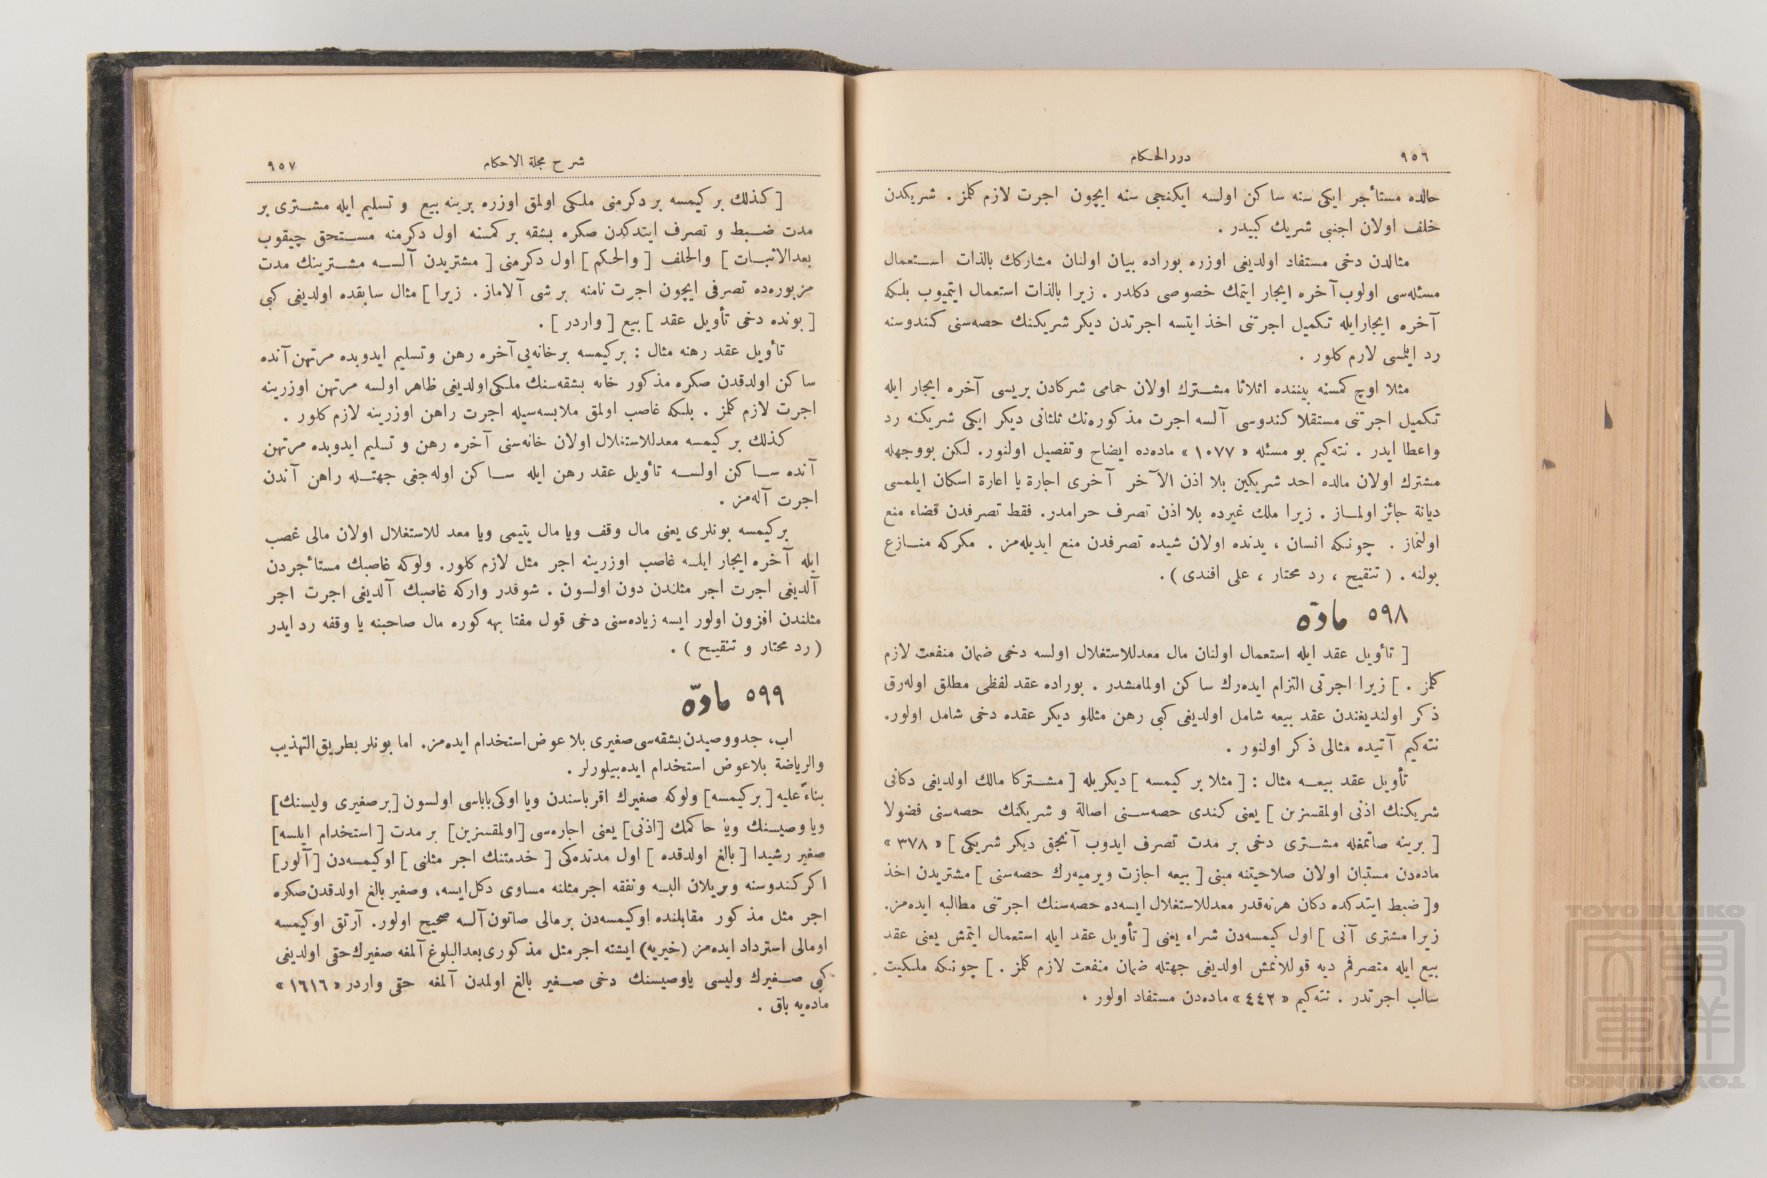 ٩٥٦
دررالحكام
حالده مستأجر ايكی سنه ساكن اولسه ايكنجی سنه ايچون اجرت لازم كلمز . شريكدن
خلف اولان اجنبی شريك كبيدر .
مثالدن دخی مستفاد اولديغی اوزره بوراده بيان اولنان مشاركك بالذات استعمال
مسئله‌سی اولوب آخره ايجار ايتمك خصوصی دكلدر . زيرا بالذات استعمال ايتميوب بلكه
آخره ايجارايله تكميل اجرتنی اخذ ايتسه اجرتدن ديكر شريكنك حصه‌سنی كندوسنه
رد ايلمسی لازم كلور .
مثلا اوچ كمسنه بيننده اثلاثا مشترك اولان حمامی شركادن بريسی آخره ايجار ايله
تكميل اجرتنی مستقلا كندوسی آلسه اجرت مذكوره‌نك ثلثانی ديكر ايكی شريكنه رد
واعطا ايدر . نته‌كيم بو مسئله « ١٠٧٧ » ماده‌ده ايضاح وتفصيل اولنور. لكن بووجهله
مشترك اولان مالده احد شريكين بلا اذن الآخر آخری اجارة يا اعارة اسكان ايلمسی
ديانة جائز اولماز . زيرا ملك غيرده بلا اذن تصرف حرامدر. فقط تصرفدن قضاء منع
اولنماز . چونكه انسان ، يدنده اولان شيده تصرفدن منع ايديله‌مز . مكركه منازع
بولنه . ( تنقيح ، رد محتار ، علی افندی ) .
٥٩٨ مادّه
[ تأويل عقد ايله استعمال اولنان مال معدللاستغلال اولسه دخی ضمان منفعت لازم
كلمز . ] زيرا اجرتی التزام ايده‌رك ساكن اولمامشدر . بوراده عقد لفظی مطلق اوله‌رق
ذكر اولنديغندن عقد بيعه شامل اولديغی كبی رهن مثللو ديكر عقده دخی شامل اولور.
نته‌كيم آتيده مثالی ذكر اولنور .
تأويل عقد بيعه مثال : [ مثلا بر كيمسه ] ديكريله [ مشتركا مالك اولديغی دكانی
شريكنك اذنی اولمقسزين ] يعنی كندی حصه‌سنی اصالة و شريكنك حصه‌سنی فضولا
[ برينه صاتمغله مشتری دخی بر مدت تصرف ايدوب آنجق ديكر شريكی ] « ٣٧٨ »
ماده‌دن مستبان اولان صلاحيتنه مبنی [ بيعه اجازت ويرميه‌رك حصه‌سنی ] مشتريدن اخذ
و[ ضبط ايتدكده دكان هرنه‌قدر معدللاستغلال ايسه‌ده حصه‌سنك اجرتنی مطالبه ايده‌مز.
زيرا مشتری آنی ] اول كيمسه‌دن شراء يعنی [ تأويل عقد ايله استعمال ايتمش يعنی عقد
بيع ايله متصرفم ديه قوللانمش اولديغی جهتله ضمان منفعت لازم كلمز . ] چونكه ملكيت
سالب اجرتدر . نته‌كيم « ٤٤٢ » ماده‌دن مستفاد اولور .
شرح مجلة الاحكام
٩٥٧
[ كذلك بر كيمسه بر دكرمنی ملكی اولمق اوزره برينه بيع و تسليم ايله مشتری بر
مدت ضبط و تصرف ايتدكدن صكره بشقه بر كمسنه اول دكرمنه مستحق چيقوب
بعدالاثبات ] والحلف [ والحكم ] اول دكرمنی [ مشتريدن آلسه مشترينك مدت
مزبوره‌ده تصرفی ايچون اجرت نامنه بر شی آلاماز . زيرا ] مثال سابقده اولديغی كبی
[ بونده دخی تأويل عقد ] بيع [ واردر ] .
تأويل عقد رهنه مثال : بركيمسه برخانه‌يی آخره رهن وتسليم ايدوبده مرتهن آنده
ساكن اولدقدن صكره مذكور خانه بشقه‌سنك ملكی‌اولديغی ظاهر اولسه مرتهن اوزرينه
اجرت لازم كلمز . بلكه غاصب اولمق ملابسه‌سيله اجرت راهن اوزرينه لازم كلور .
كذلك بر كيمسه معدللاستغلال اولان خانه‌سنی آخره رهن و تسليم ايدوبده مرتهن
آنده ساكن اولسه تأويل عقد رهن ايله ساكن اوله‌جغی جهتله راهن آندن
اجرت آله‌مز .
بر كيمسه بونلری يعنی مال وقف ويا مال يتيمی ويا معد للاستغلال اولان مالی غصب
ايله آخره ايجار ايلسه غاصب اوزرينه اجر مثل لازم كلور. ولوكه غاصبك مستأجردن
آلديغی اجرت اجر مثلندن دون اولسون . شوقدر واركه غاصبك آلديغی اجرت اجر
مثلندن افزون اولور ايسه زياده‌سنی دخی قول مفتا بهه كوره مال صاحبنه يا وقفه رد ايدر
( رد محتار و تنقيح ) .
٥٩٩ مادّه
اب، جدووصيدن‌بشقه‌سی‌صغيری بلا عوض‌استخدام ايده‌مز. اما بونلر بطريق‌التهذيب
والرياضة بلاعوض استخدام ايده‌بيلورلر .
بناءً عليه [ بركيمسه ] ولوكه صغيرك اقرباسندن ويا اوكی‌باباسی اولسون [ برصغيری وليسنك ]
ويا وصيسنك ويا حاكمك [ اذنی ] يعنی اجاره‌سی [ اولمقسزين ] بر مدت [ استخدام ايلسه ]
صغير رشيدا [ بالغ اولدقده ] اول مدتده‌كی [ خدمتنك اجر مثلنی ] اوكيمسه‌دن [ آلور ]
اكر كندوسنه ويريلان البسه ونفقه اجرمثلنه مساوی دكل‌ايسه، وصغير بالغ اولدقدن‌صكره
اجر مثل مذكور مقابلنده اوكيمسه‌دن برمالی صاتون‌آلسه صحيح اولور. آرتق اوكيمسه
اومالی استرداد ايده‌مز (خيريه) ايشته اجرمثل مذكوری‌بعدالبلوغ آلمغه صغيرك‌حتی اولديغی
كبی صغيرك وليسی ياوصيسنك دخی صغير بالغ اولمدن آلمغه حقی واردر « ١٦١٦ »
ماده‌يه باق .
TOYO BUNKO
東洋文庫
TOYO BUNKO